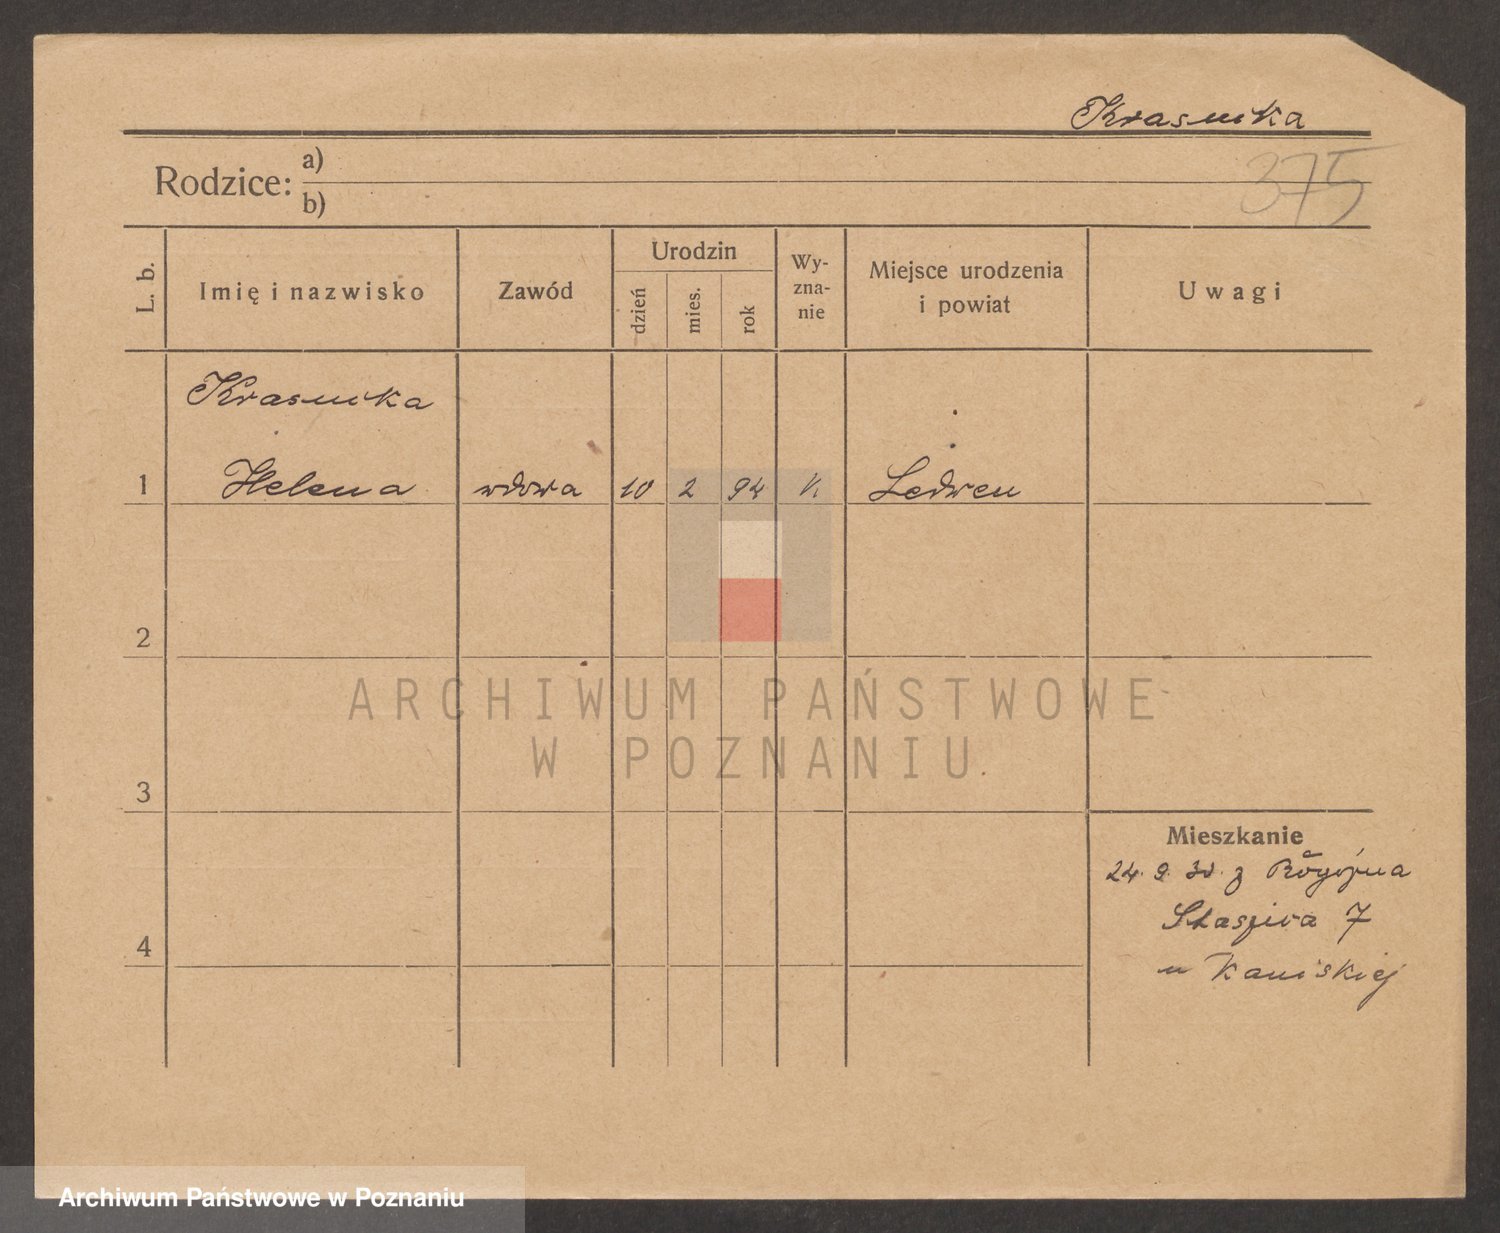 Krasnika
Rodzice: a)
b)
375
L. b.
Imię i nazwisko
Zawód
Urodzin
dzień
mies.
rok
Wy-
zna-
nie
Miejsce urodzenia
i powiat
Uwagi
Krasnika
1 Helena wdowa 10 2 94 K Ledwen
2
3
4
Mieszkanie
24. 9. 30. z Rogoźna
Staszica 7
u Kaniskiej
ARCHIWUM PAŃSTWOWE
W POZNANIU
Archiwum Państwowe w Poznaniu